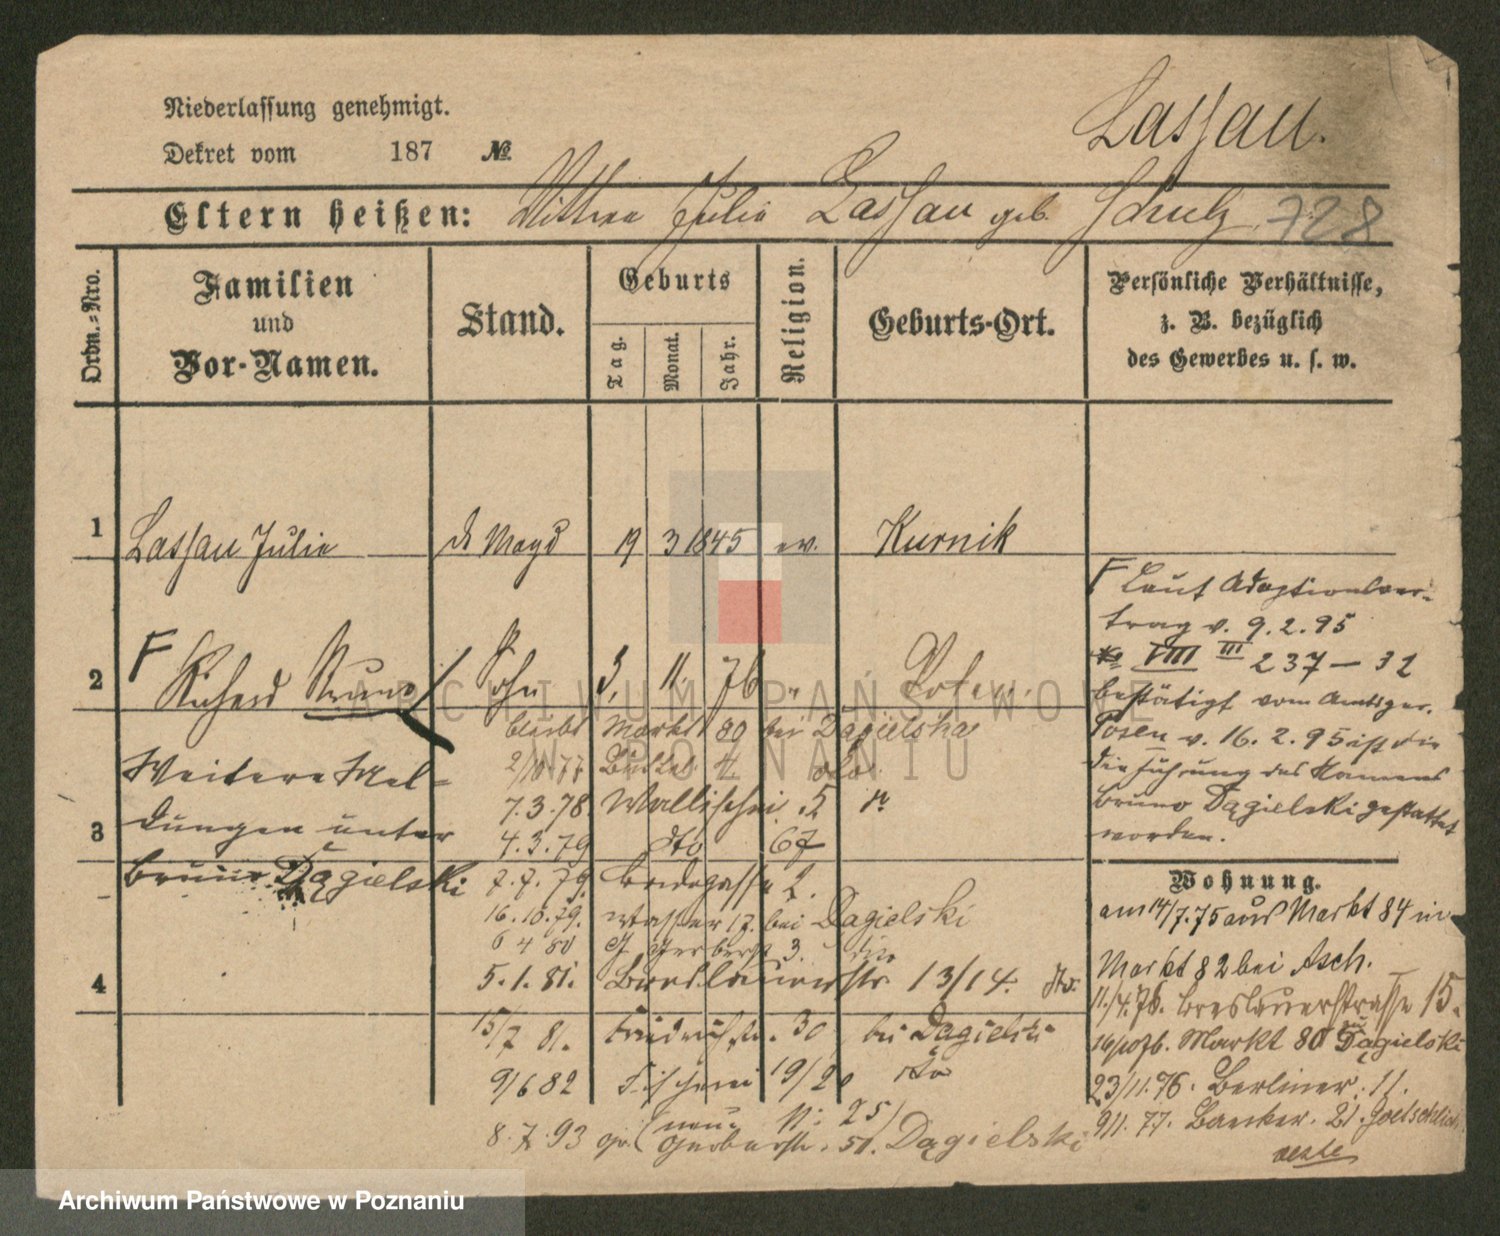 Niederlassung genehmigt.
Lassau.
Dekret vom 187 №
Eltern heißen: Julie Lassau geb. Schulz 728
Ordn.-Nro.
Familien
und
Vor-Namen.
Stand.
Geburts
Tag.
Monat.
Jahr.
Religion.
Geburts-Ort.
Persönliche Verhältnisse,
z. B. bezüglich
des Gewerbes u. s. w.
1 Lassau Julie d. Magd 19 3 1845 ev. Kurnik
F Laut Adoptionsver-
trag v. 9.2.95
VIII III 237 — 32
bestätigt vom Amtsger.
Posen v. 16.2.95 ist die
die Führung des Namens
Bruno Dągielski gestattet
worden.
2 F Richard Bruno Sohn 3. 11. 76 " Posen
bleibt Markt 80 bei Dagielska
2/10.77 4 dto.
7.3.78. Wallischei 5
4.3.79 dto 67
7.7.79. 2.
16.10.79. Wasser 17. bei Dagielski
6 4 80 Gr Gerberstr 3. dto
5.1.81. Breslauerstr. 13/14. dto.
15/7 81. Friedrichstr. 30 bei Dagielski
9/6 82 Fischerei 19/20 dto
neue N: 25
8.7.93 gr. Gerberstr. 51. Dągielski
Weitere Mel-
3 dungen unter
Bruno Dągielski
4
Wohnung.
am 14/7.75 aus Markt 84 in
Markt 82 bei Asch.
11./4.76. Breslauerstrasse 15.
Markt 80 bei Dągielski
23/11.76. Berliner. 11.
9/1.77. Baecker. 21. Goetschlich
ARCHIWUM PAŃSTWOWE
W POZNANIU
Archiwum Państwowe w Poznaniu